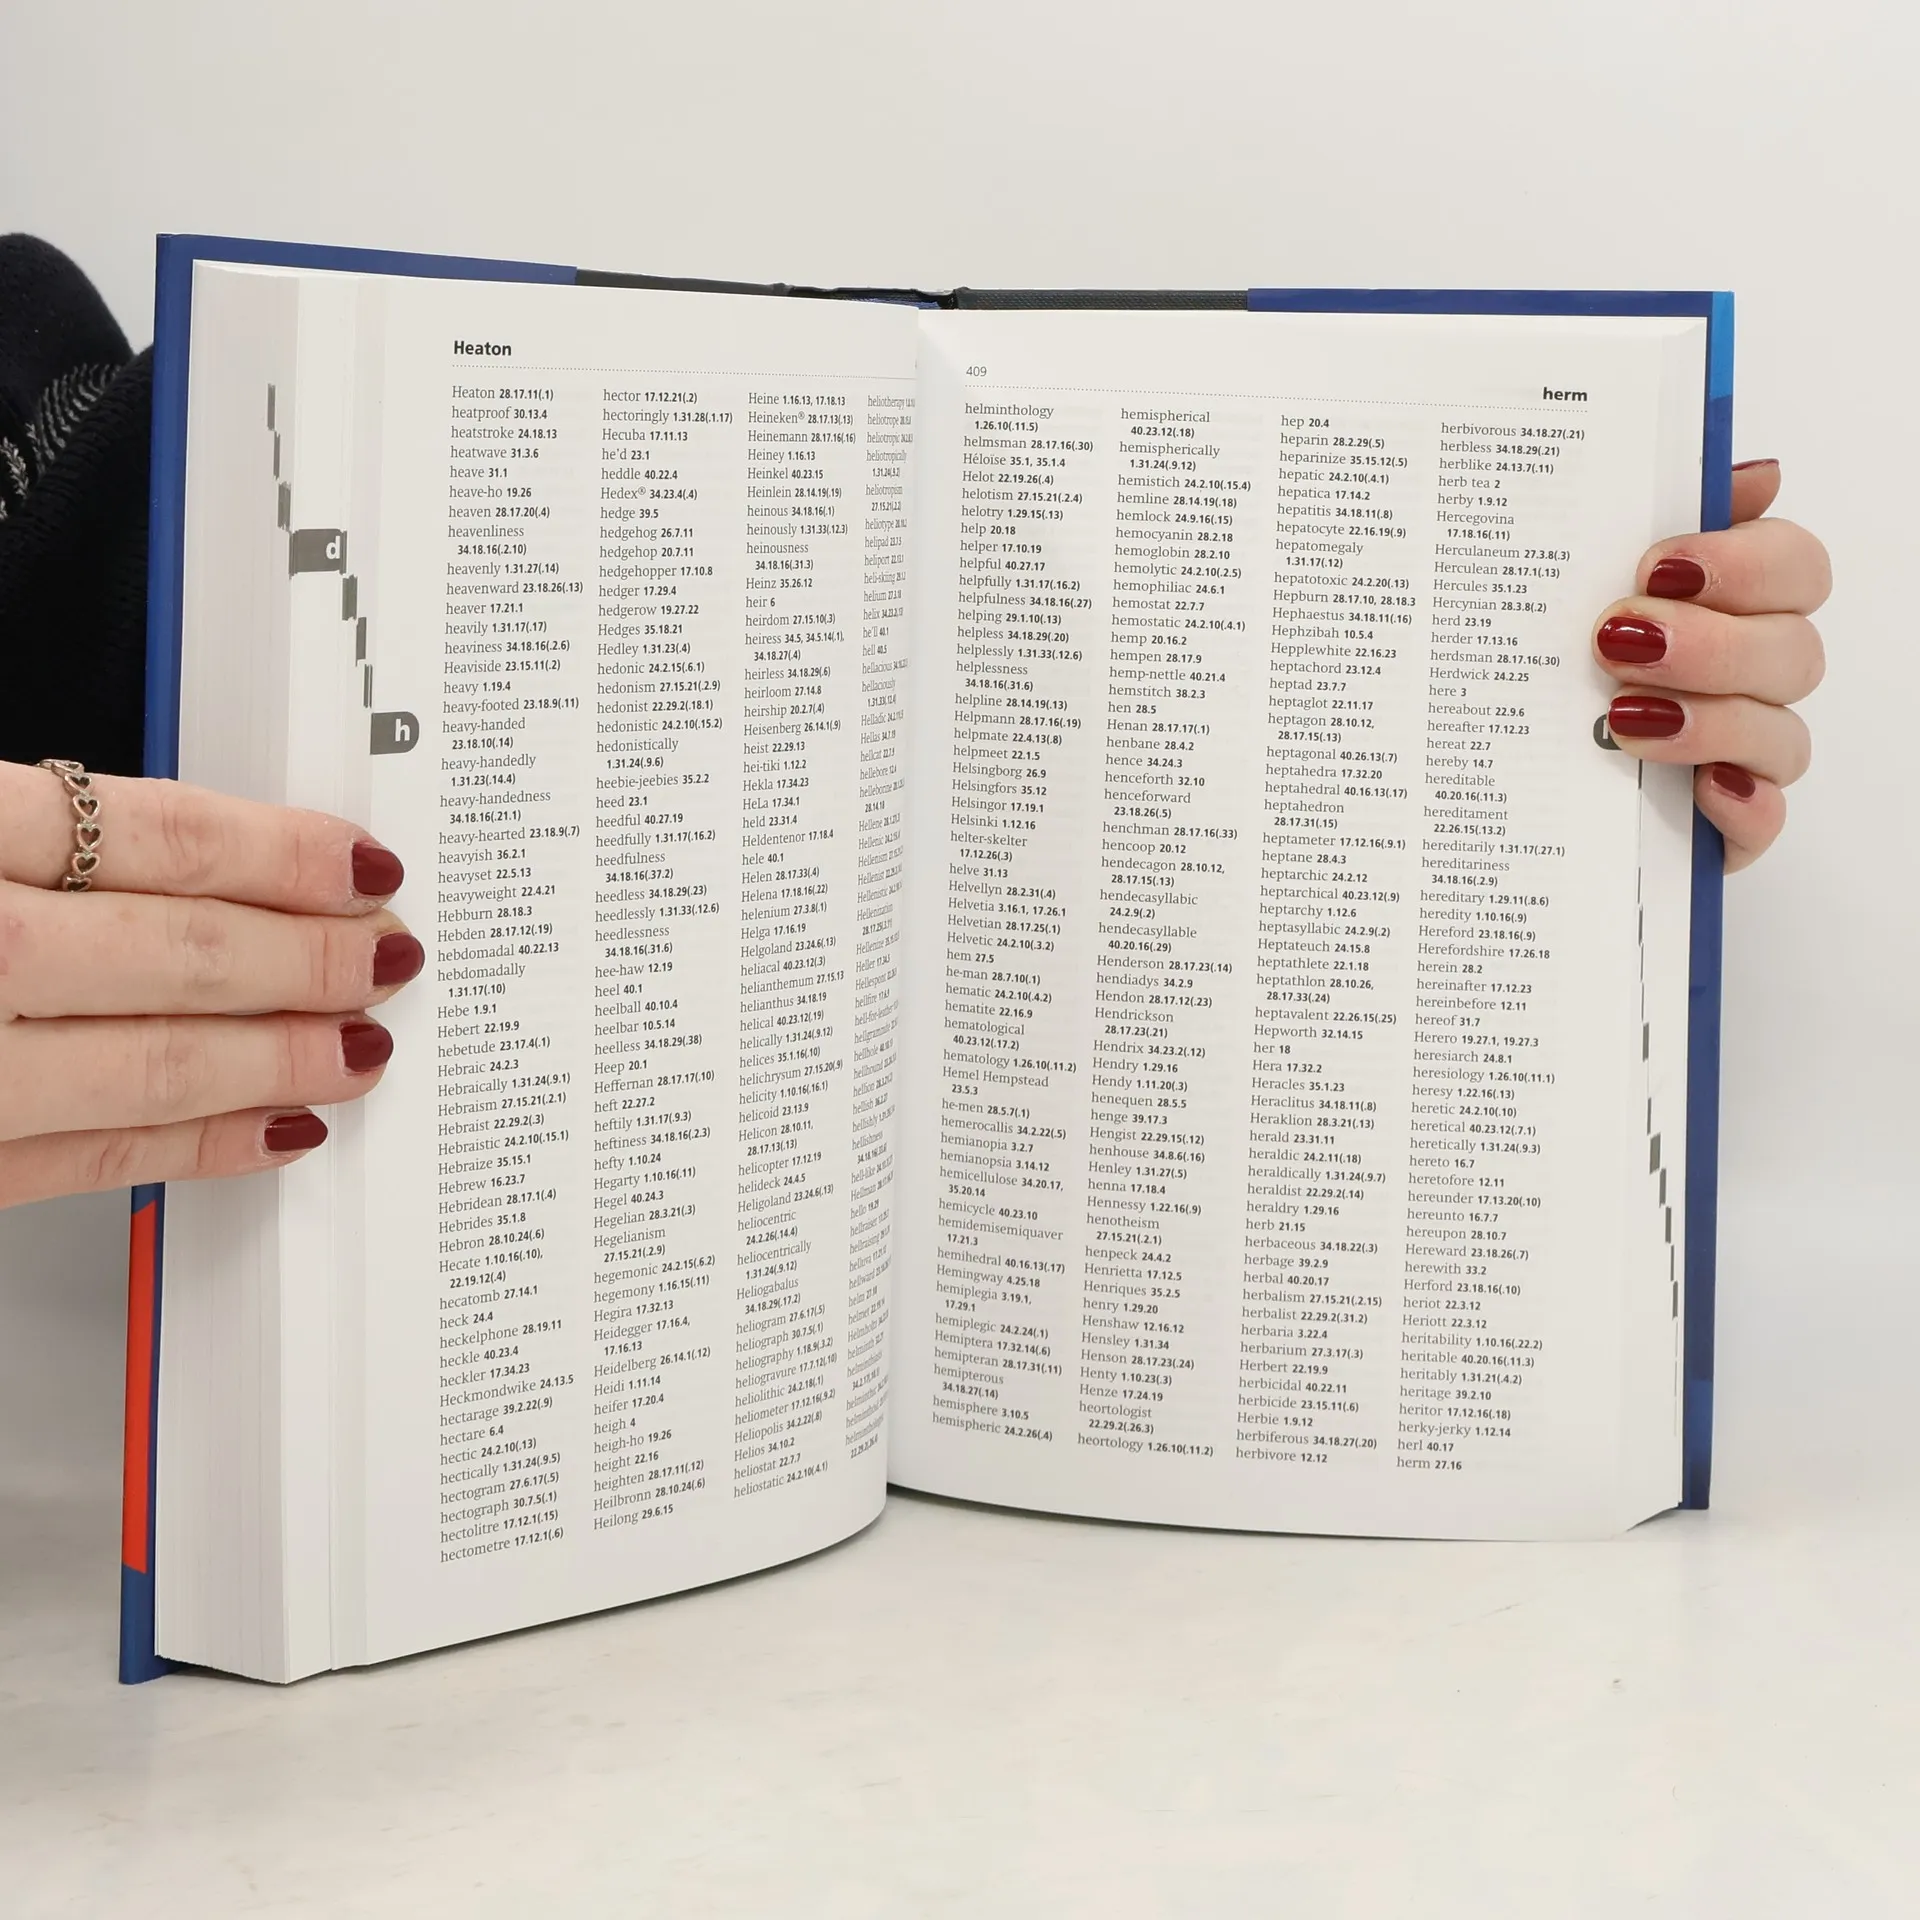 Heaton
d
h
Heaton 28.17.11(.1)
heatproof 30.13.4
heatstroke 24.18.13
heatwave 31.3.6
heave 31.1
heave-ho 19.26
heaven 28.17.20(.4)
heavenliness
34.18.16(.2.10)
heavenly 1.31.27(.14)
heavenward 23.18.26(.13)
heaver 17.21.1
heavily 1.31.17(.17)
heaviness 34.18.16(.2.6)
Heaviside 23.15.11(.2)
heavy 1.19.4
heavy-footed 23.18.9(.11)
heavy-handed
23.18.10(.14)
heavy-handedly
1.31.23(.14.4)
heavy-handedness
34.18.16(.21.1)
heavy-hearted 23.18.9(.7)
heavyish 36.2.1
heavyset 22.5.13
heavyweight 22.4.21
Hebburn 28.18.3
Hebden 28.17.12(.19)
hebdomadal 40.22.13
hebdomadally
1.31.17(.10)
Hebe 1.9.1
Hebert 22.19.9
hebetude 23.17.4(.1)
Hebraic 24.2.3
Hebraically 1.31.24(.9.1)
Hebraism 27.15.21(.2.1)
Hebraist 22.29.2(.3)
Hebraistic 24.2.10(.15.1)
Hebraize 35.15.1
Hebrew 16.23.7
Hebridean 28.17.1(.4)
Hebrides 35.1.8
Hebron 28.10.24(.6)
Hecate 1.10.16(.10),
22.19.12(.4)
hecatomb 27.14.1
heck 24.4
heckelphone 28.19.11
heckle 40.23.4
heckler 17.34.23
Heckmondwike 24.13.5
hectarage 39.2.22(.9)
hectare 6.4
hectic 24.2.10(.13)
hectically 1.31.24(.9.5)
hectogram 27.6.17(.5)
hectograph 30.7.5(.1)
hectolitre 17.12.1(.15)
hectometre 17.12.1(.6)
hector 17.12.21(.2)
hectoringly 1.31.28(.1.17)
Hecuba 17.11.13
he'd 23.1
heddle 40.22.4
Hedex® 34.23.4(.4)
hedge 39.5
hedgehog 26.7.11
hedgehop 20.7.11
hedgehopper 17.10.8
hedger 17.29.4
hedgerow 19.27.22
Hedges 35.18.21
Hedley 1.31.23(.4)
hedonic 24.2.15(.6.1)
hedonism 27.15.21(.2.9)
hedonist 22.29.2(.18.1)
hedonistic 24.2.10(.15.2)
hedonistically
1.31.24(.9.6)
heebie-jeebies 35.2.2
heed 23.1
heedful 40.27.19
heedfully 1.31.17(.16.2)
heedfulness
34.18.16(.37.2)
heedless 34.18.29(.23)
heedlessly 1.31.33(.12.6)
heedlessness
34.18.16(.31.6)
hee-haw 12.19
heel 40.1
heelball 40.10.4
heelbar 10.5.14
heelless 34.18.29(.38)
Heep 20.1
Heffernan 28.17.17(.10)
heft 22.27.2
heftily 1.31.17(.9.3)
heftiness 34.18.16(.2.3)
hefty 1.10.24
Hegarty 1.10.16(.11)
Hegel 40.24.3
Hegelian 28.3.21(.3)
Hegelianism
27.15.21(.2.9)
hegemonic 24.2.15(.6.2)
hegemony 1.16.15(.11)
Hegira 17.32.13
Heidegger 17.16.4,
17.16.13
Heidelberg 26.14.1(.12)
Heidi 1.11.14
heifer 17.20.4
heigh 4
heigh-ho 19.26
height 22.16
heighten 28.17.11(.12)
Heilbronn 28.10.24(.6)
Heilong 29.6.15
Heine 1.16.13, 17.18.13
Heineken® 28.17.13(.13)
Heinemann 28.17.16(.16)
Heiney 1.16.13
Heinkel 40.23.15
Heinlein 28.14.19(.19)
heinous 34.18.16(.1)
heinously 1.31.33(.12.3)
heinousness
34.18.16(.31.3)
Heinz 35.26.12
heir 6
heirdom 27.15.10(.3)
heiress 34.5, 34.5.14(.1),
34.18.27(.4)
heirless 34.18.29(.6)
heirloom 27.14.8
heirship 20.2.7(.4)
Heisenberg 26.14.1(.9)
heist 22.29.13
hei-tiki 1.12.2
Hekla 17.34.23
HeLa 17.34.1
held 23.31.4
Heldentenor 17.18.4
hele 40.1
Helen 28.17.33(.4)
Helena 17.18.16(.22)
helenium 27.3.8(.1)
Helga 17.16.19
Helgoland 23.24.6(.13)
heliacal 40.23.12(.3)
helianthemum 27.15.13
helianthus 34.18.19
helical 40.23.12(.19)
helically 1.31.24(.9.12)
helices 35.1.16(.10)
helichrysum 27.15.20(.9)
helicity 1.10.16(.16.1)
helicoid 23.13.9
Helicon 28.10.11,
28.17.13(.13)
helicopter 17.12.19
helideck 24.4.5
Heligoland 23.24.6(.13)
heliocentric
24.2.26(.14.4)
heliocentrically
1.31.24(.9.12)
Heliogabalus
34.18.29(.17.2)
heliogram 27.6.17(.5)
heliograph 30.7.5(.1)
heliography 1.18.9(.3.2)
heliogravure 17.7.12(.10)
heliolithic 24.2.18(.1)
heliometer 17.12.16(.9.2)
Heliopolis 34.2.22(.8)
Helios 34.10.2
heliostat 22.7.7
heliostatic 24.2.10(.4.1)
heliotherapy
heliotrope
heliotropic
heliotropically
heliotropism
heliotype
helipad
heliport
heli-skiing
helium
helix
he'll 40.1
hell 40.5
hellacious
hellaciously
Helladic
Hellas
hellcat
hellebore
helleborine
Hellene
Hellenic
Hellenism
Hellenist
Hellenistic
Hellenization
Hellenize
Heller
Hellespont
hellfire
hell-for-leather
hellgrammite
hellhole
hellhound
hellion
hellish
hellishly
hellishness
hell-like
Hellman
hello
hellraiser
hellraising
helluva
hellward
helm
helmet
Helmholtz
helminth
409
herm
helminthology
1.26.10(.11.5)
helmsman 28.17.16(.30)
Héloïse 35.1, 35.1.4
Helot 22.19.26(.4)
helotism 27.15.21(.2.4)
helotry 1.29.15(.13)
help 20.18
helper 17.10.19
helpful 40.27.17
helpfully 1.31.17(.16.2)
helpfulness 34.18.16(.27)
helping 29.1.10(.13)
helpless 34.18.29(.20)
helplessly 1.31.33(.12.6)
helplessness
34.18.16(.31.6)
helpline 28.14.19(.13)
Helpmann 28.17.16(.19)
helpmate 22.4.13(.8)
helpmeet 22.1.5
Helsingborg 26.9
Helsingfors 35.12
Helsingor 17.19.1
Helsinki 1.12.16
helter-skelter
17.12.26(.3)
helve 31.13
Helvellyn 28.2.31(.4)
Helvetia 3.16.1, 17.26.1
Helvetian 28.17.25(.1)
Helvetic 24.2.10(.3.2)
hem 27.5
he-man 28.7.10(.1)
hematic 24.2.10(.4.2)
hematite 22.16.9
hematological
40.23.12(.17.2)
hematology 1.26.10(.11.2)
Hemel Hempstead
23.5.3
he-men 28.5.7(.1)
hemerocallis 34.2.22(.5)
hemianopia 3.2.7
hemianopsia 3.14.12
hemicellulose 34.20.17,
35.20.14
hemicycle 40.23.10
hemidemisemiquaver
17.21.3
hemihedral 40.16.13(.17)
Hemingway 4.25.18
hemiplegia 3.19.1,
17.29.1
hemiplegic 24.2.24(.1)
Hemiptera 17.32.14(.6)
hemipteran 28.17.31(.11)
hemipterous
34.18.27(.14)
hemisphere 3.10.5
hemispheric 24.2.26(.4)
hemispherical
40.23.12(.18)
hemispherically
1.31.24(.9.12)
hemistich 24.2.10(.15.4)
hemline 28.14.19(.18)
hemlock 24.9.16(.15)
hemocyanin 28.2.18
hemoglobin 28.2.10
hemolytic 24.2.10(.2.5)
hemophiliac 24.6.1
hemostat 22.7.7
hemostatic 24.2.10(.4.1)
hemp 20.16.2
hempen 28.17.9
hemp-nettle 40.21.4
hemstitch 38.2.3
hen 28.5
Henan 28.17.17(.1)
henbane 28.4.2
hence 34.24.3
henceforth 32.10
henceforward
23.18.26(.5)
henchman 28.17.16(.33)
hencoop 20.12
hendecagon 28.10.12,
28.17.15(.13)
hendecasyllabic
24.2.9(.2)
hendecasyllable
40.20.16(.29)
Henderson 28.17.23(.14)
hendiadys 34.2.9
Hendon 28.17.12(.23)
Hendrickson
28.17.23(.21)
Hendrix 34.23.2(.12)
Hendry 1.29.16
Hendy 1.11.20(.3)
henequen 28.5.5
henge 39.17.3
Hengist 22.29.15(.12)
henhouse 34.8.6(.16)
Henley 1.31.27(.5)
henna 17.18.4
Hennessy 1.22.16(.9)
henotheism
27.15.21(.2.1)
henpeck 24.4.2
Henrietta 17.12.5
Henriques 35.2.5
henry 1.29.20
Henshaw 12.16.12
Hensley 1.31.34
Henson 28.17.23(.24)
Henty 1.10.23(.3)
Henze 17.24.19
heortologist
22.29.2(.26.3)
heortology 1.26.10(.11.2)
hep 20.4
heparin 28.2.29(.5)
heparinize 35.15.12(.5)
hepatic 24.2.10(.4.1)
hepatica 17.14.2
hepatitis 34.18.11(.8)
hepatocyte 22.16.19(.9)
hepatomegaly
1.31.17(.12)
hepatotoxic 24.2.20(.13)
Hepburn 28.17.10, 28.18.3
Hephaestus 34.18.11(.16)
Hephzibah 10.5.4
Hepplewhite 22.16.23
heptachord 23.12.4
heptad 23.7.7
heptaglot 22.11.17
heptagon 28.10.12,
28.17.15(.13)
heptagonal 40.26.13(.7)
heptahedra 17.32.20
heptahedral 40.16.13(.17)
heptahedron
28.17.31(.15)
heptameter 17.12.16(.9.1)
heptane 28.4.3
heptarchic 24.2.12
heptarchical 40.23.12(.9)
heptarchy 1.12.6
heptasyllabic 24.2.9(.2)
Heptateuch 24.15.8
heptathlete 22.1.18
heptathlon 28.10.26,
28.17.33(.24)
heptavalent 22.26.15(.25)
Hepworth 32.14.15
her 18
Hera 17.32.2
Heracles 35.1.23
Heraclitus 34.18.11(.8)
Heraklion 28.3.21(.13)
herald 23.31.11
heraldic 24.2.11(.18)
heraldically 1.31.24(.9.7)
heraldist 22.29.2(.14)
heraldry 1.29.16
herb 21.15
herbaceous 34.18.22(.3)
herbage 39.2.9
herbal 40.20.17
herbalism 27.15.21(.2.15)
herbalist 22.29.2(.31.2)
herbaria 3.22.4
herbarium 27.3.17(.3)
Herbert 22.19.9
herbicidal 40.22.11
herbicide 23.15.11(.6)
Herbie 1.9.12
herbiferous 34.18.27(.20)
herbivore 12.12
herbivorous 34.18.27(.21)
herbless 34.18.29(.21)
herblike 24.13.7(.11)
herb tea 2
herby 1.9.12
Hercegovina
17.18.16(.11)
Herculaneum 27.3.8(.3)
Herculean 28.17.1(.13)
Hercules 35.1.23
Hercynian 28.3.8(.2)
herd 23.19
herder 17.13.16
herdsman 28.17.16(.30)
Herdwick 24.2.25
here 3
hereabout 22.9.6
hereafter 17.12.23
hereat 22.7
hereby 14.7
hereditable
40.20.16(.11.3)
hereditament
22.26.15(.13.2)
hereditarily 1.31.17(.27.1)
hereditariness
34.18.16(.2.9)
hereditary 1.29.11(.8.6)
heredity 1.10.16(.9)
Hereford 23.18.16(.9)
Herefordshire 17.26.18
herein 28.2
hereinafter 17.12.23
hereinbefore 12.11
hereof 31.7
Herero 19.27.1, 19.27.3
heresiarch 24.8.1
heresiology 1.26.10(.11.1)
heresy 1.22.16(.13)
heretic 24.2.10(.10)
heretical 40.23.12(.7.1)
heretically 1.31.24(.9.3)
hereto 16.7
heretofore 12.11
hereunder 17.13.20(.10)
hereunto 16.7.7
hereupon 28.10.7
Hereward 23.18.26(.7)
herewith 33.2
Herford 23.18.16(.10)
heriot 22.3.12
Heriott 22.3.12
heritability 1.10.16(.22.2)
heritable 40.20.16(.11.3)
heritably 1.31.21(.4.2)
heritage 39.2.10
heritor 17.12.16(.18)
herky-jerky 1.12.14
herl 40.17
herm 27.16